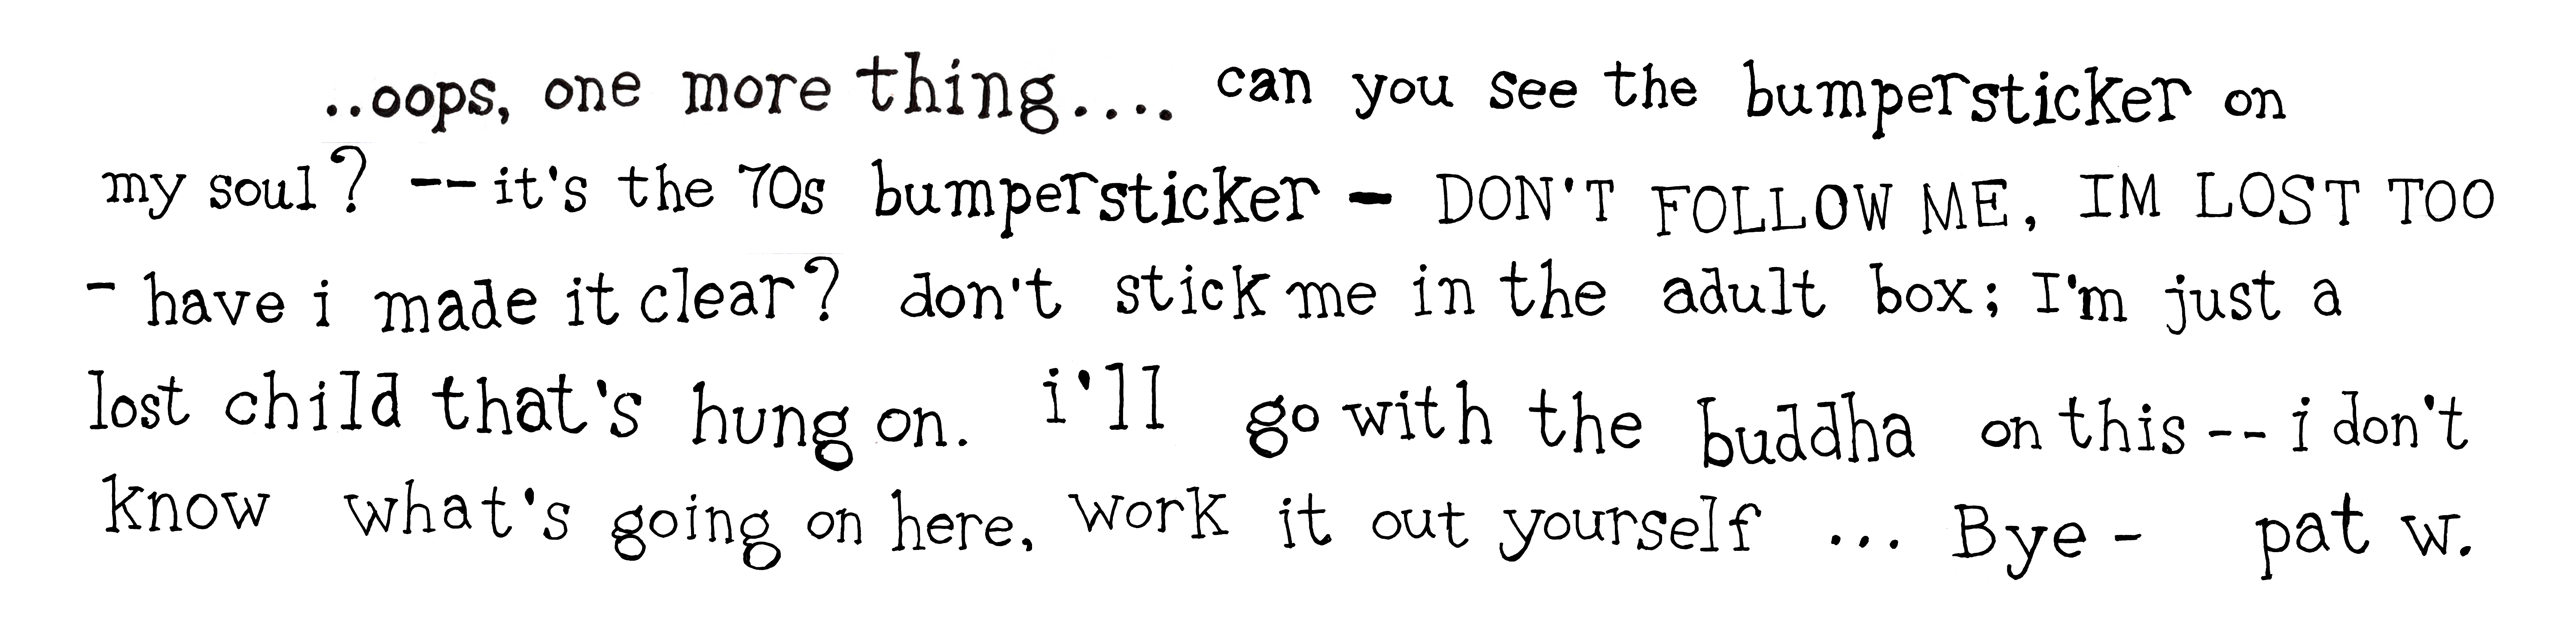 ..oops, one more thing.... can you see the bumpersticker on
my soul? -- it's the 70s bumpersticker - DON'T FOLLOW ME, IM LOST TOO
- have i made it clear? don't stick me in the adult box; I'm just a
lost child that's hung on. i'll go with the buddha on this -- i don't
know what's going on here, work it out yourself ... Bye - pat w.